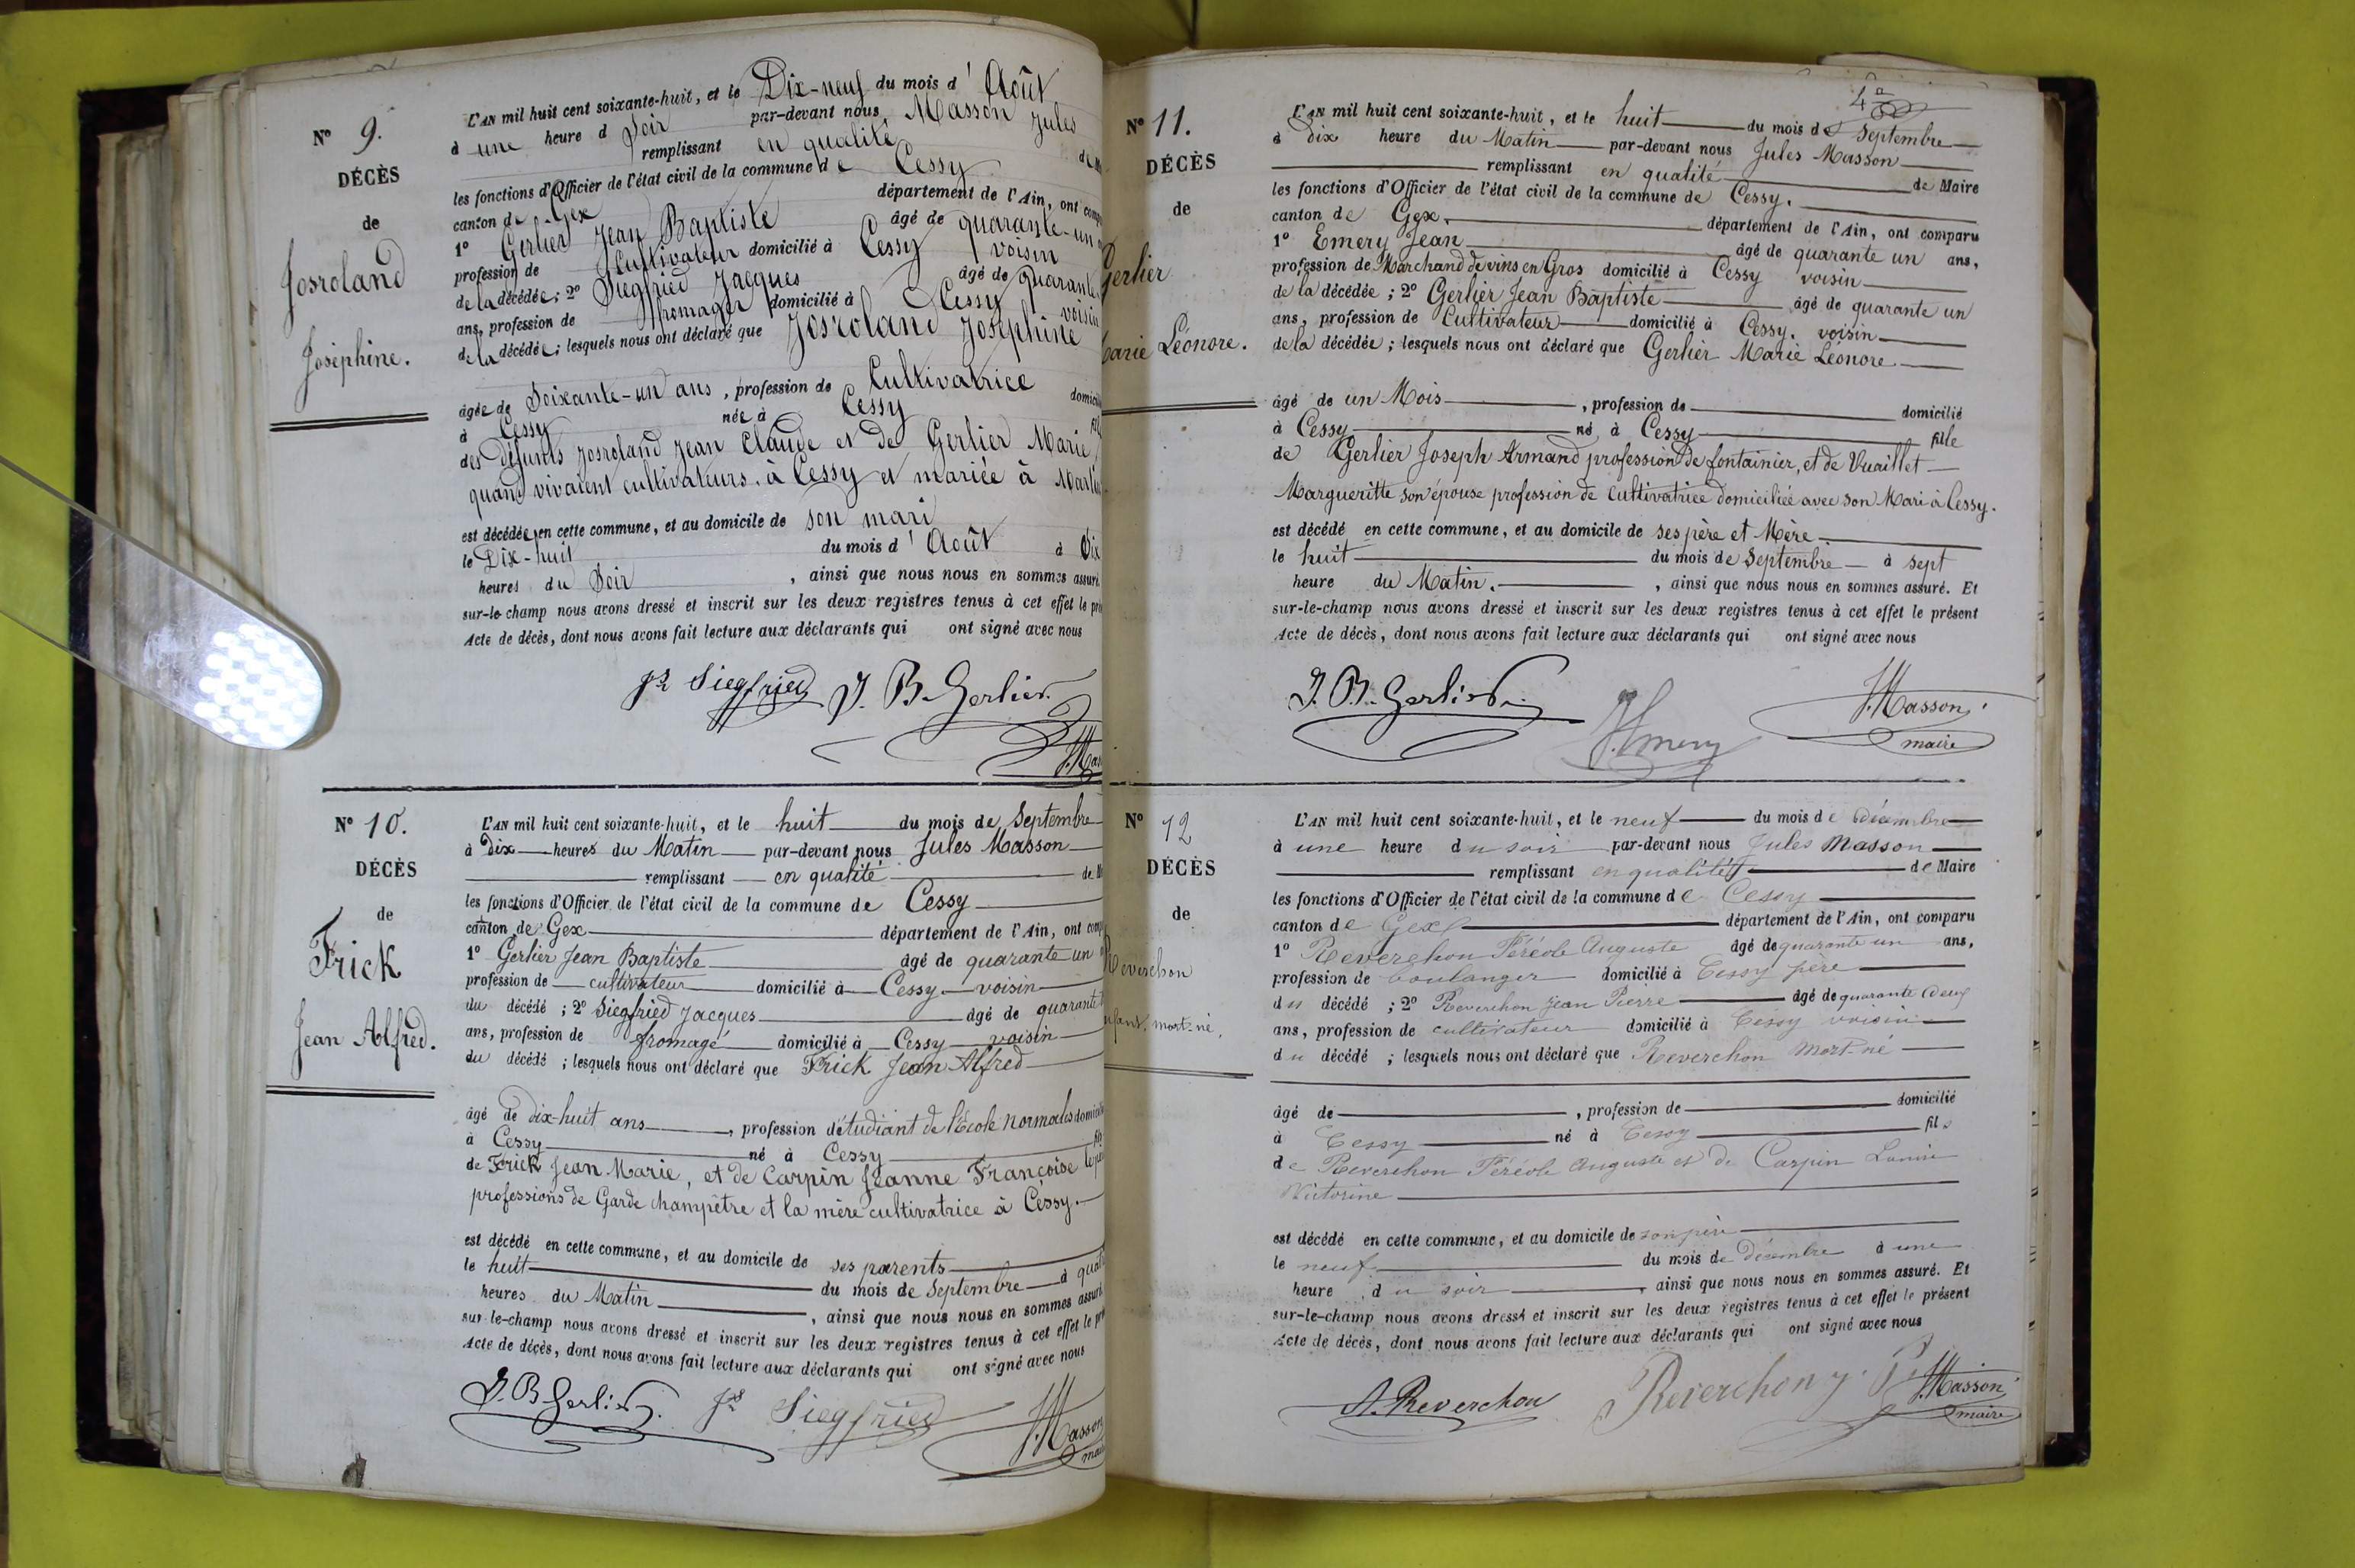 N° 9.
DÉCÈS
de
Josroland
Joséphine.
L'AN mil huit cent soixante-huit, et le Dix-neuf du mois d'Août
à une heure d Soir par-devant nous Masson Jules
remplissant en qualité de
les fonctions d'Officier de l'état civil de la commune de Cessy
canton de Gex département de l'Ain, ont
1° Gerlier Jean Baptiste âgé de quarante-un
profession de Cultivateur domicilié à Cessy voisin
de la décédée ; 2° Siegfried Jacques âgé de quarante
ans, profession de fromager domicilié à Cessy voisin
de la décédée ; lesquels nous ont déclaré que Josroland Joséphine
âgée de Soixante-un ans, profession de Cultivatrice
à Cessy née à Cessy
des défunts Josroland Jean Claude et de Gerlier Marie
quand vivaient cultivateurs à Cessy et mariée à
est décédée en cette commune, et au domicile de son mari
le Dix-huit du mois d'Août à
heures du Soir, ainsi que nous nous en sommes assuré.
sur-le-champ nous avons dressé et inscrit sur les deux registres tenus à cet effet le
Acte de décès, dont nous avons fait lecture aux déclarants qui ont signé avec nous
Js Siegfried J. B. Gerlier
N° 10.
DÉCÈS
de
Frick
Jean Alfred.
L'AN mil huit cent soixante-huit, et le huit du mois de Septembre
à dix heures du Matin par-devant nous Jules Masson
remplissant en qualité de
les fonctions d'Officier de l'état civil de la commune de Cessy
canton de Gex département de l'Ain, ont
1° Gerlier Jean Baptiste âgé de quarante un
profession de cultivateur domicilié à Cessy voisin
du décédé ; 2° Siegfried Jacques âgé de quarante
ans, profession de fromagé domicilié à Cessy voisin
du décédé ; lesquels nous ont déclaré que Frick Jean Alfred
âgé de dix-huit ans, profession d'étudiant de l'École normale
à Cessy né à Cessy fils
de Frick Jean Marie, et de Carpin Jeanne Françoise
professions de Garde champêtre et la mère cultivatrice à Cessy.
est décédé en cette commune, et au domicile de ses parents
le huit du mois de Septembre à
heures du Matin, ainsi que nous nous en sommes assuré
sur-le-champ nous avons dressé et inscrit sur les deux registres tenus à cet effet le
Acte de décès, dont nous avons fait lecture aux déclarants qui ont signé avec nous
J. B Gerlier. Js Siegfried J. Masson
N° 11.
DÉCÈS
de
Gerlier
Marie Léonore.
L'AN mil huit cent soixante-huit, et le huit du mois de Septembre
à Dix heure du Matin par-devant nous Jules Masson
remplissant en qualité de Maire
les fonctions d'Officier de l'état civil de la commune de Cessy.
canton de Gex. département de l'Ain, ont comparu
1° Emery Jean âgé de quarante un ans,
profession de Marchand de vins en Gros domicilié à Cessy voisin
de la décédée ; 2° Gerlier Jean Baptiste âgé de quarante un
ans, profession de Cultivateur domicilié à Cessy. voisin
de la décédée ; lesquels nous ont déclaré que Gerlier Marie Léonore
âgé de un Mois, profession de domicilié
à Cessy né à Cessy fille
de Gerlier Joseph Armand profession de fontainier, et de Vuaillet
Margueritte son épouse profession de cultivatrice domiciliée avec son Mari à Cessy.
est décédé en cette commune, et au domicile de ses père et Mère
le huit du mois de Septembre à sept
heure du Matin., ainsi que nous nous en sommes assuré. Et
sur-le-champ nous avons dressé et inscrit sur les deux registres tenus à cet effet le présent
Acte de décès, dont nous avons fait lecture aux déclarants qui ont signé avec nous
J. B. Gerlier J. Emery J. Masson
maire
N° 12
DÉCÈS
de
Reverchon
enfant mort-né.
L'AN mil huit cent soixante-huit, et le neuf du mois de décembre
à une heure du soir par-devant nous Jules Masson
remplissant en qualité de Maire
les fonctions d'Officier de l'état civil de la commune de Cessy
canton de Gex département de l'Ain, ont comparu
1° Reverchon Féréole Auguste âgé de quarante un ans,
profession de boulanger domicilié à Cessy père
du décédé ; 2° Reverchon Jean Pierre âgé de quarante deux
ans, profession de cultivateur domicilié à Cessy voisin
du décédé ; lesquels nous ont déclaré que Reverchon Mort-né
âgé de, profession de domicilié
à Cessy né à Cessy fils
de Reverchon Féréole Auguste et de Carpin
Victorine
est décédé en cette commune, et au domicile de son père
le neuf du mois de Décembre à une
heure du soir, ainsi que nous nous en sommes assuré. Et
sur-le-champ nous avons dressé et inscrit sur les deux registres tenus à cet effet le présent
Acte de décès, dont nous avons fait lecture aux déclarants qui ont signé avec nous
A. Reverchon Reverchon J. P. J. Masson
maire